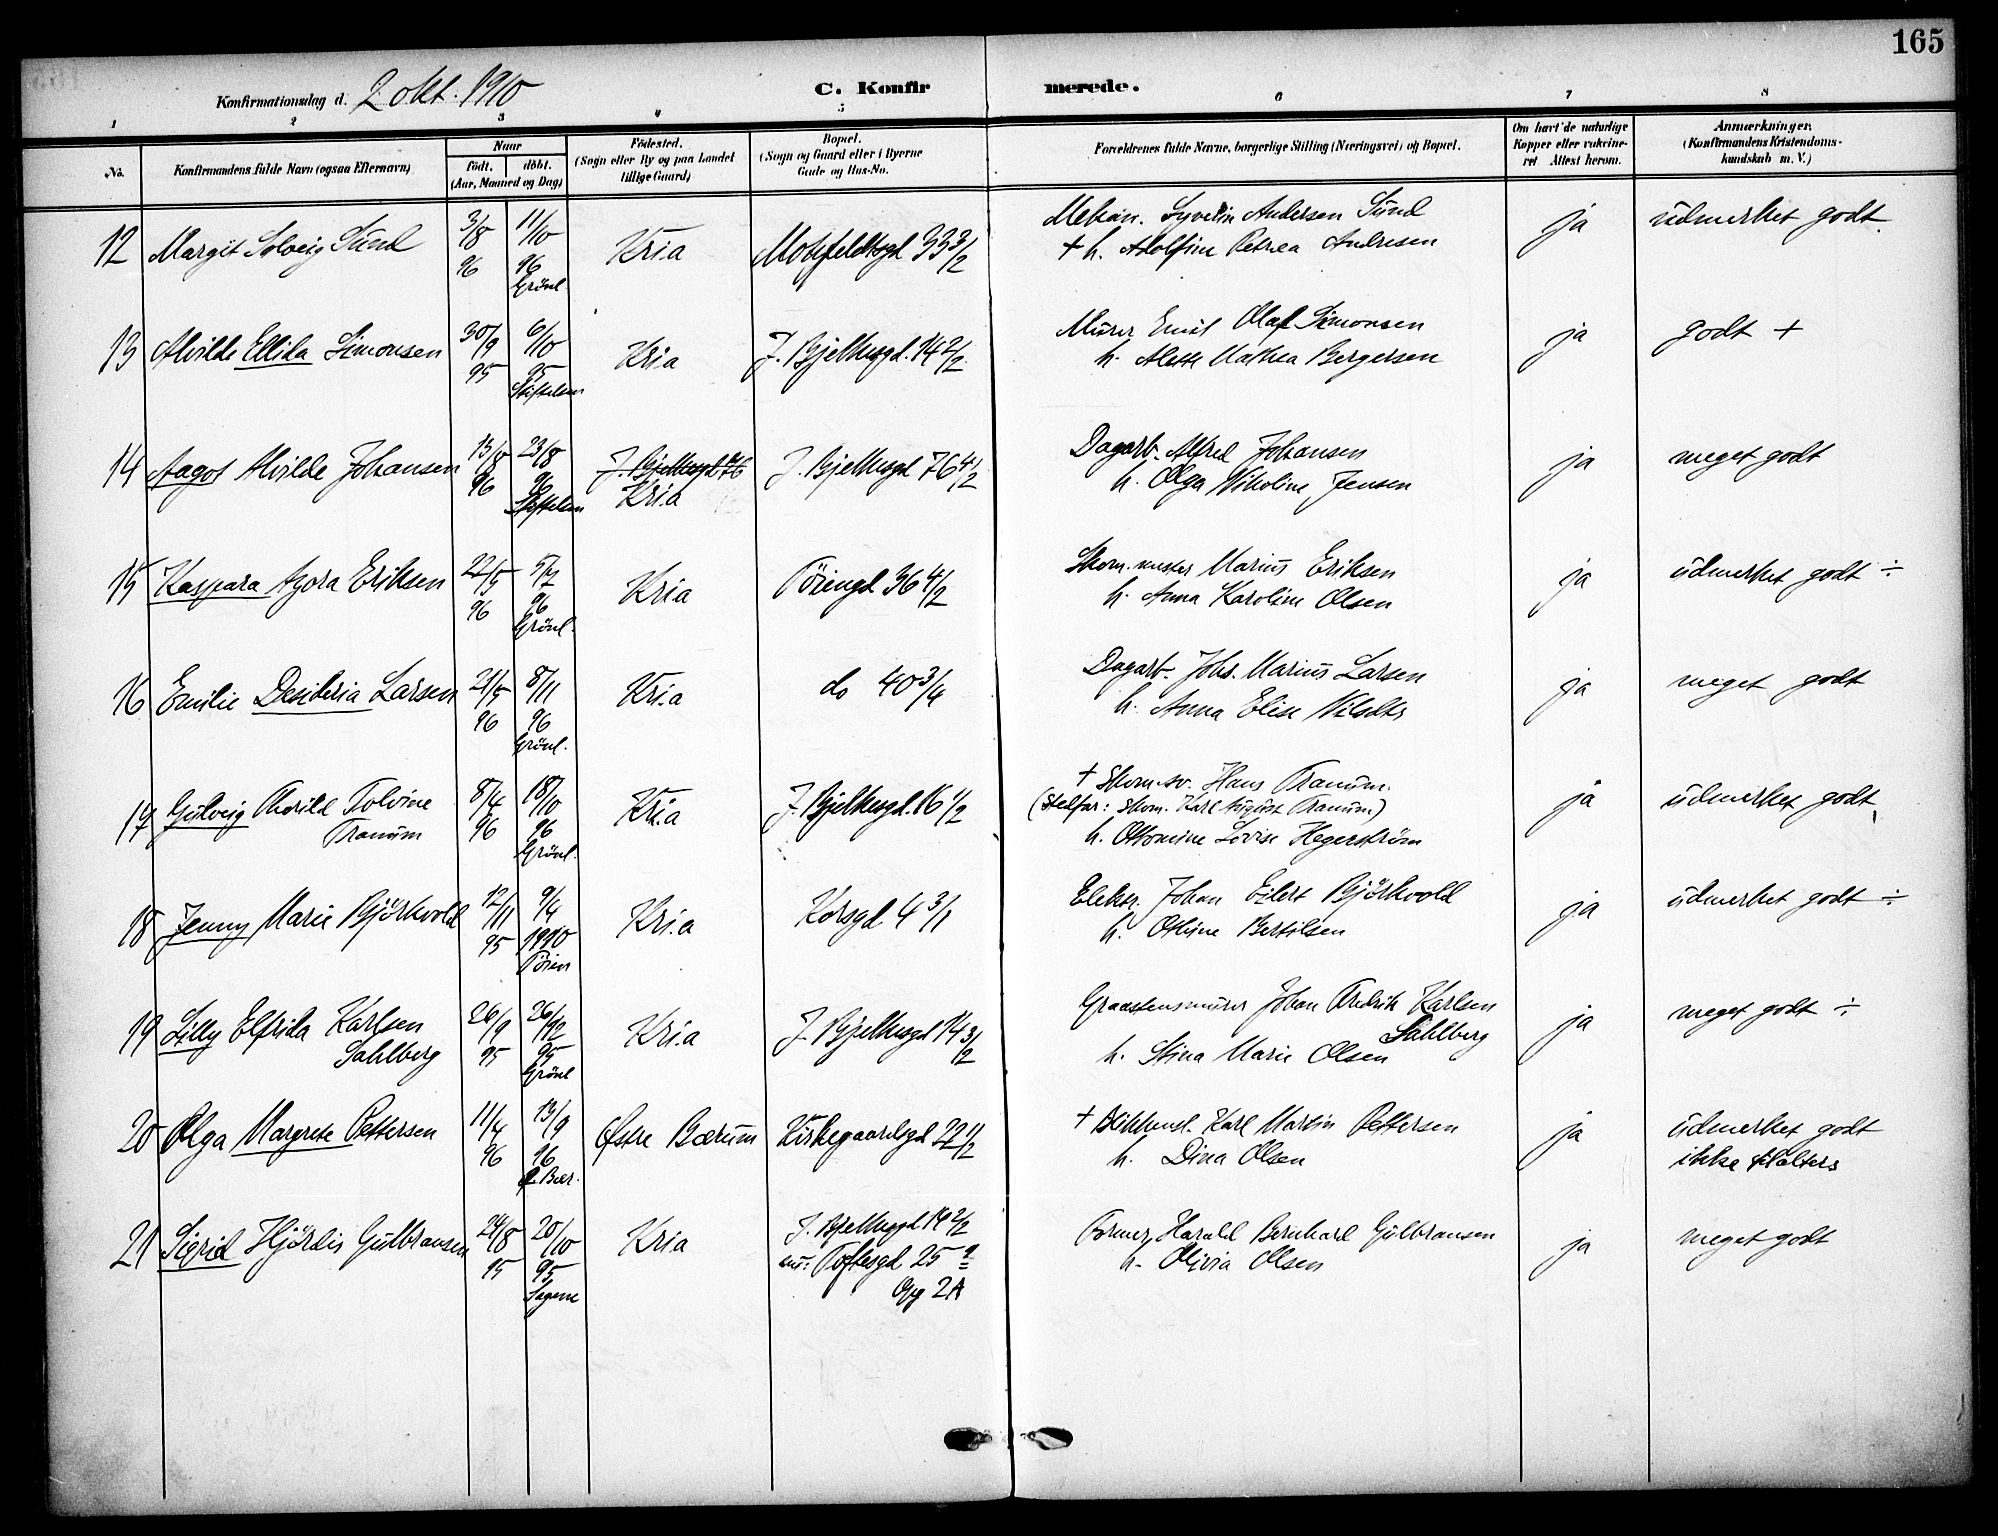 165
Konfirmationsdag d. 2 okt. 1910
C. Konfirmerede.
1 2 3 4 5 6 7 8
No.
Konfirmandens fulde Navn (ogsaa Efternavn)
Naar
födt. döbt.
(Aar, Maaned og Dag)
Födested.
(Sogn eller By og paa Landet
tillige Gaard)
Bopæl.
(Sogn og Gaard eller i Byerne
Gade og Hus-No.
Forældrenes fulde Navne, borgerlige Stilling (Næringsvei) og Bopæl.
Om havt de naturlige
Kopper eller vaccine-
ret Attest herom.
Anmærkninger.
(Konfirmandens Kristendoms-
kundskab m. V.)
12 Margit Solveig Sund 3/8 96 11/10 96 Grönl. Kria Motzfeldtsgd 33 3/2
Mekan. Syverin Andersen Sund
+ h. Adolfine Petrea Andresen
ja udmerket godt
13 Alvilde Ellida Simonsen 30/9 95 6/10 95 Stiftelsen Kria J. Bjelkesgd. 14 2/2
Murer Emil Olaf Simonsen
h. Alette Mathea Bergersen
ja godt +
14 Aagot Alvilde Johansen 13/8 96 23/8 96 Stiftelsen J. Bjelkesgd. 76
Kria J. Bjelkesgd 76 4/2
Dagarb. Alfred Johansen
h. Olga Nikoline Jensen
ja meget godt
15 Kaspara Agora Eriksen 22/5 96 5/7 96 Grönl. Kria Töiengd 36 4/2
Skom.mester Marius Eriksen
h. Anna Karoline Olsen
ja udmerket godt ÷
16 Emilie Desideria Larsen 21/5 96 8/11 96 Grönl. Kria do 40 3/4
Dagarb. Johs. Marius Larsen
h. Anna Elise
ja meget godt
17 Gulveig Thorild Tolvine
Tranum 8/4 96 18/10 96 Grönl. Kria J. Bjelkesgd. 16 1/2
+ Skom.sv. Hans Tranum.
(Stedfar: Skom. Karl August Tranum)
h. Ottomine Lovise Hegerström
ja udmerket godt
18 Jenny Marie Björkvold 12/11 95 9/4 1910 Töien Kria Korsgd. 4 3/1
Elektr. Johan Eilert Björkvold
h. Othine Bertilsen
ja udmerket godt ÷
19 Lilly Elfrida Karlsen
Sahlberg 26/9 95 26/12 95 Grönl Kria J. Bjelkesgd 14 3/2
Graastensmurer Johan Fredrik Karlsen
Sahlberg
h. Stina Marie Olsen
ja meget godt ÷
20 Olga Margrete Pettersen 11/4 96 13/9 96 Ø. Bær. Østre Bærum Kirkegaardsgd 22 1/2
+ Karl Martin Pettersen
h. Dina Olsen
ja udmerket godt
ikke
21 Sigrid Hjördis Gulbransen 24/8 95 20/10 95 Sagene Kria J. Bjelkesgd 14 2/2
nu: Toftesgd 25
Opg 2A
Former Harald Bernhard Gulbransen
h. Olivia Olsen
ja meget godt